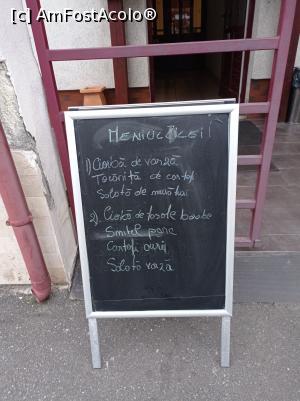 [c] AmFostAcolo®
MENIUL ZILEI!
1) Ciorbă de varză
Tocăniță de cartofi
Salată de murături
2) Ciorbă de fasole boabe
Șnițel porc
Cartofi auriți
Salată varză